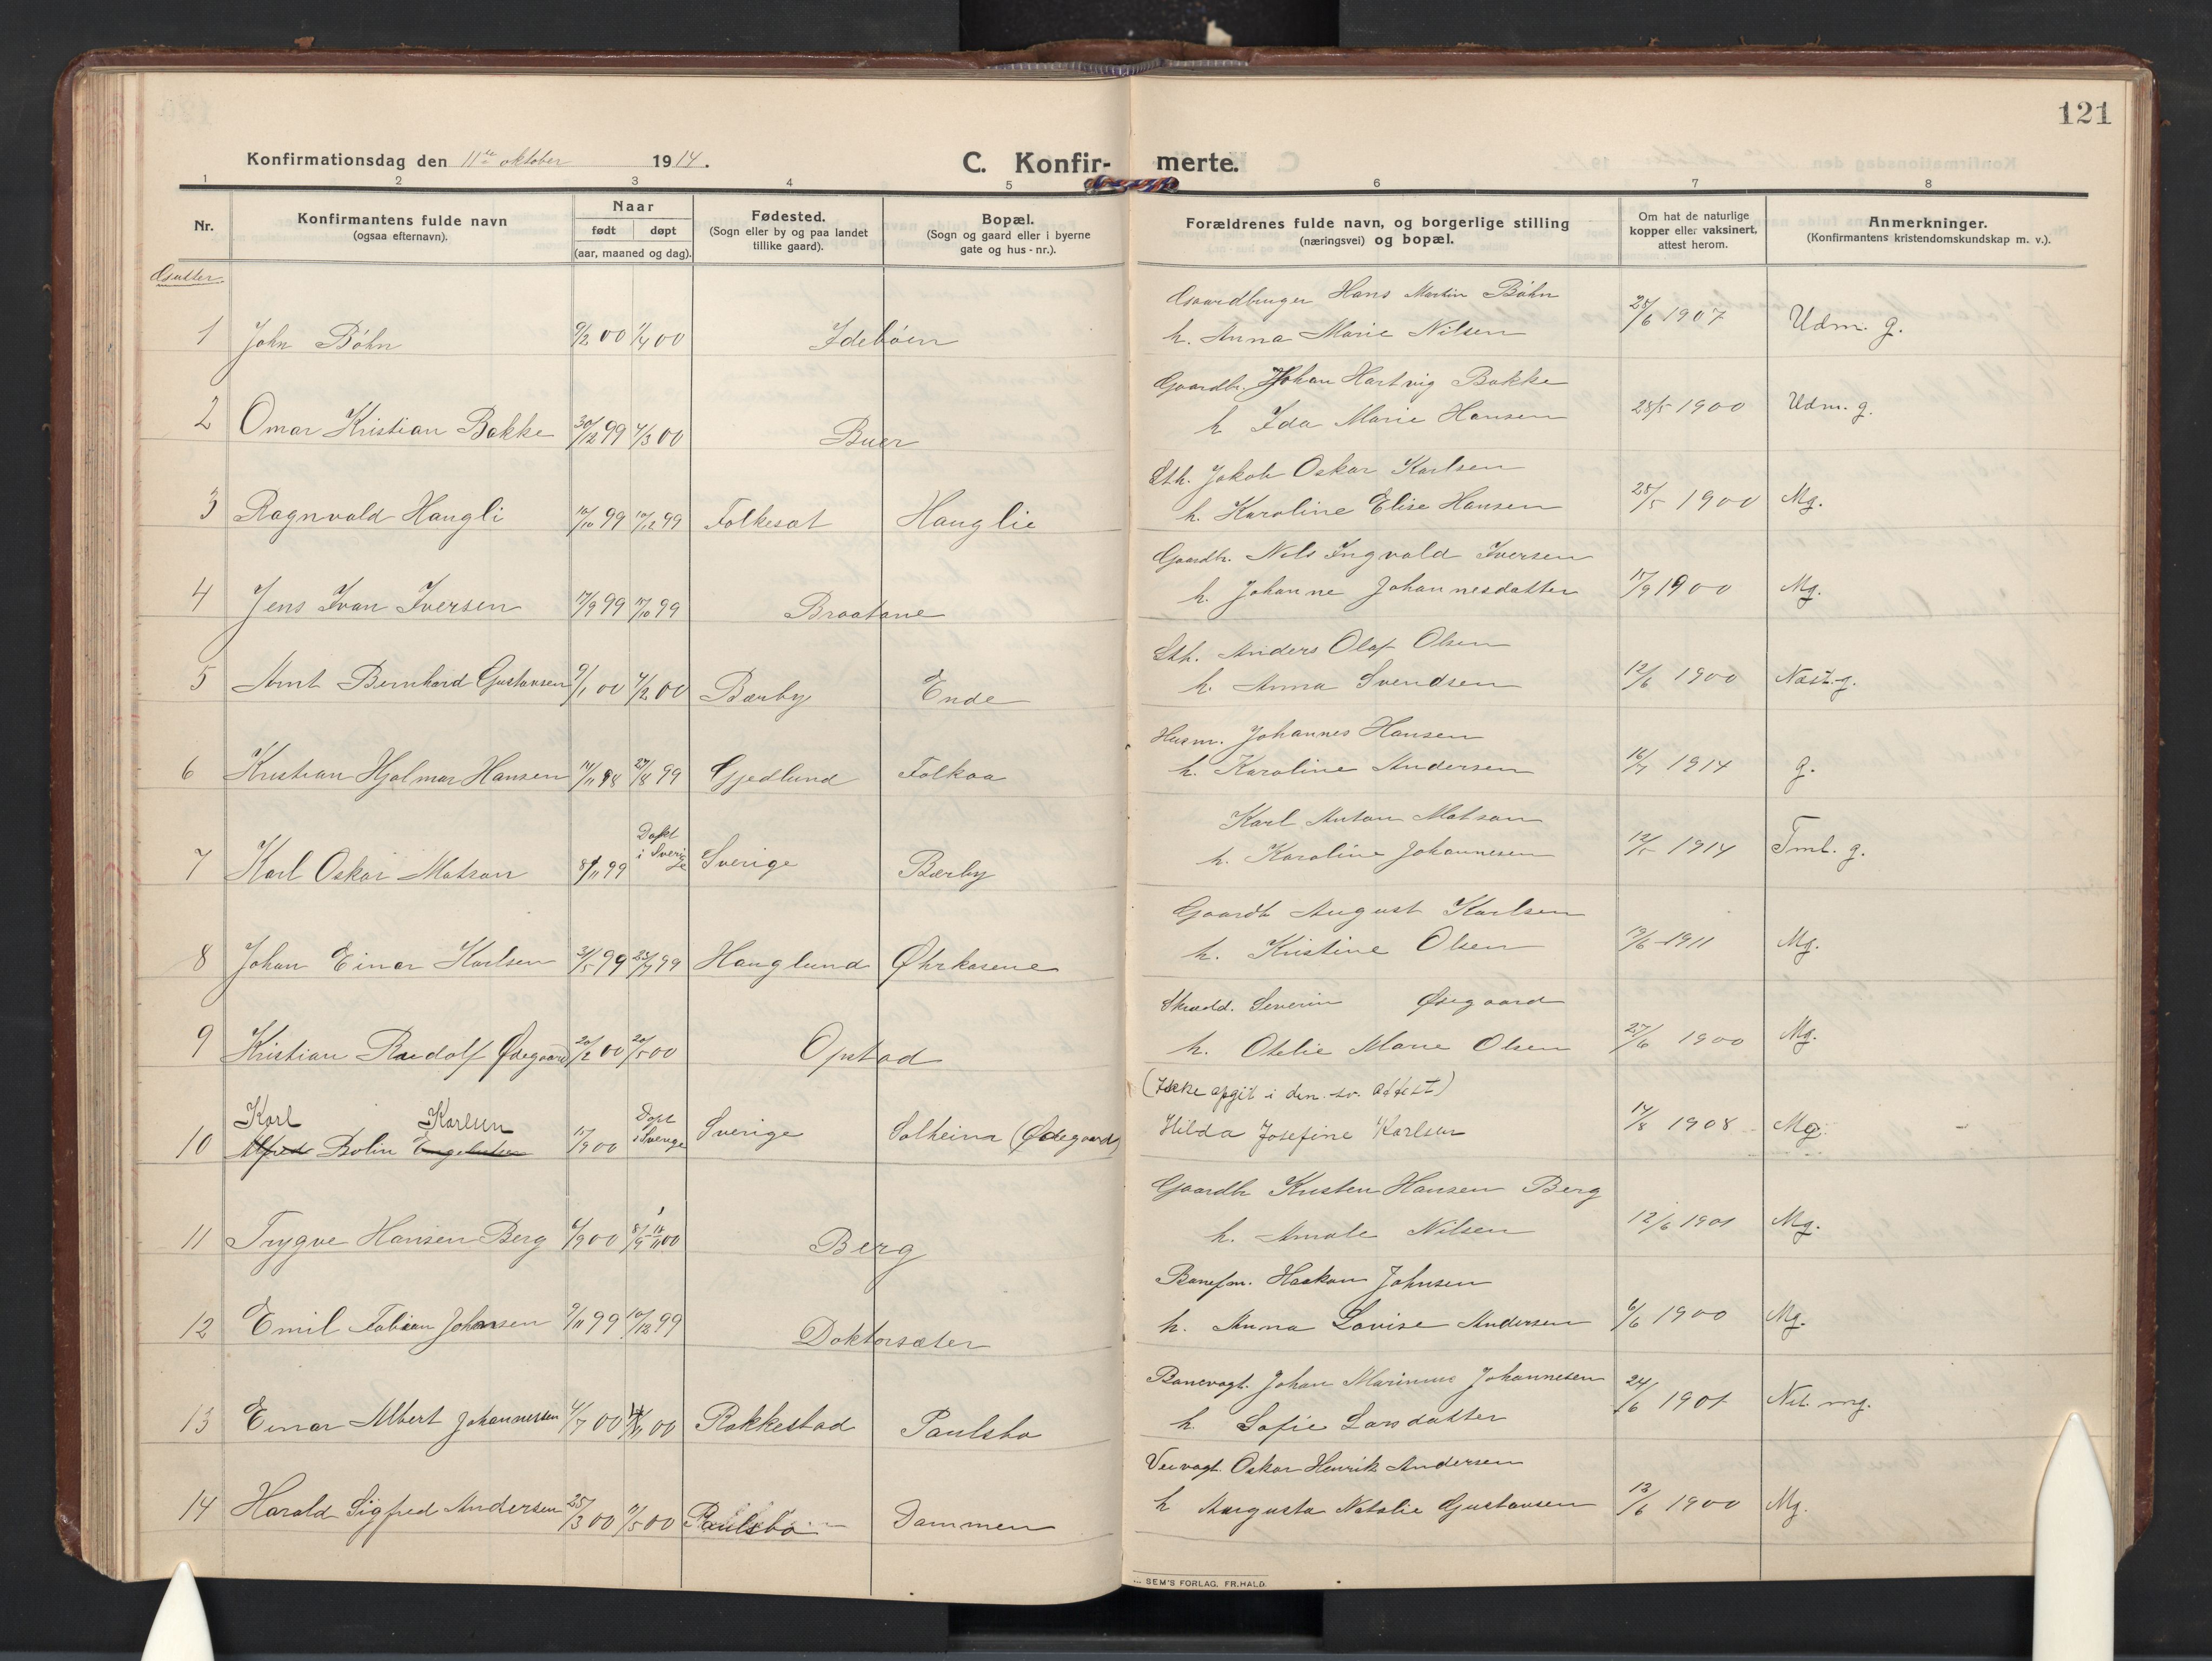 121
Konfirmationsdag den 11te oktober 1914.
C. Konfir- merte.
1 2 3 4 5 6 7 8
Nr.
Konfirmantens fulde navn
(ogsaa efternavn).
Naar
født døpt
(aar, maaned og dag).
Fødested.
(Sogn eller by og paa landet
tillike gaard).
Bopæl.
(Sogn og gaard eller i byerne
gate og hus-nr.).
Forældrenes fulde navn, og borgerlige stilling
(næringsvei) og bopæl.
Om hat de naturlige
kopper eller vaksinert,
attest herom.
Anmerkninger.
(Konfirmantens kristendomskundskap m. v.).
Gutter.
Gaardbruger Hans Martin Bøhn
1 John Bøhn 9/2 00 1/4 00 Idebøen h. Anna Marie Nilsen 25/6 1907 Udm. g.
Gaardbr. Johan Hartvig Bakke
2 Omar Kristian Bakke 30/12 99 4/3 00 Buer h Ida Marie Hansen 28/5 1900 Udm. g.
Sth. Jakob Oskar Karlsen
3 Ragnvald Haugli 10/10 99 10/12 99 Folkesat Hauglie h. Karoline Elise Hansen 28/5 1900 Mg.
Gaardbr. Nils Ingvald Iversen
4 Jens Ivan Iversen 17/9 99 17/10 99 Braatane h. Johanne Johannesdatter 17/9 1900 Mg.
Sth. Anders Olaf Olsen
5 Arnt Bernhard Gustavsen 9/1 00 4/2 00 Bærby Ende h. Anna Svendsen 12/6 1900 Næst. g.
Husm. Johannes Hansen
6 Kristian Hjalmar Hansen 14/11 98 27/8 99 Gjedlund Folkaa h. Karoline Andersen 16/7 1914 g.
Karl Anton Matson
7 Karl Oskar Matson 8/11 99 Døpt i Sverige Sverige Bærby h. Karoline Johannesen 12/5 1914 Tml. g.
Gaardb August Karlsen
8 Johan Einar Karlsen 31/5 99 23/7 99 Hauglund Øhrkasene h. Kristine Olsen 19/6 1911 Mg.
Skredd. Severin Ødegaard
9 Kristian Rudolf Ødegaard 20/2 00 20/5 00 Opstad h. Otelie Marie Olsen 27/6 1900 Mg.
(Ikke opgit i den. sv. attest)
Karl Karlsen
10 Alfred Bolin Engebretsen 17/9 00 Døpt i Sverige Sverige Solheim (Ødegaard) Hilda Josefine Karlsen 14/8 1908 Mg.
Gaardb Kristen Hansen Berg
11 Trygve Hansen Berg 6/9 00 8/9 11/11 00 Berg h. Amale Nilsen 12/6 1901 Mg.
Banefm. Haakon Johnsen
12 Emil Fabian Johansen 9/11 99 10/12 99 Doktorsæter h. Anna Lovise Andersen 6/6 1900 Mg.
Banevogt. Johan Marinus Johannesen
13 Einar Albert Johannessen 4/7 00 00 Rakkestad Paulsbo h Sofie Larsdatter 24/6 1901 Nst. mg.
Veivogt. Oskar Henrik Andersen
14 Harald Sigfred Andersen 25/3 00 /5 00 Paulsbo Dammen h Augusta Natalie Gustavsen 13/6 1900 Mg.
SEM'S FORLAG, FR. HALD.